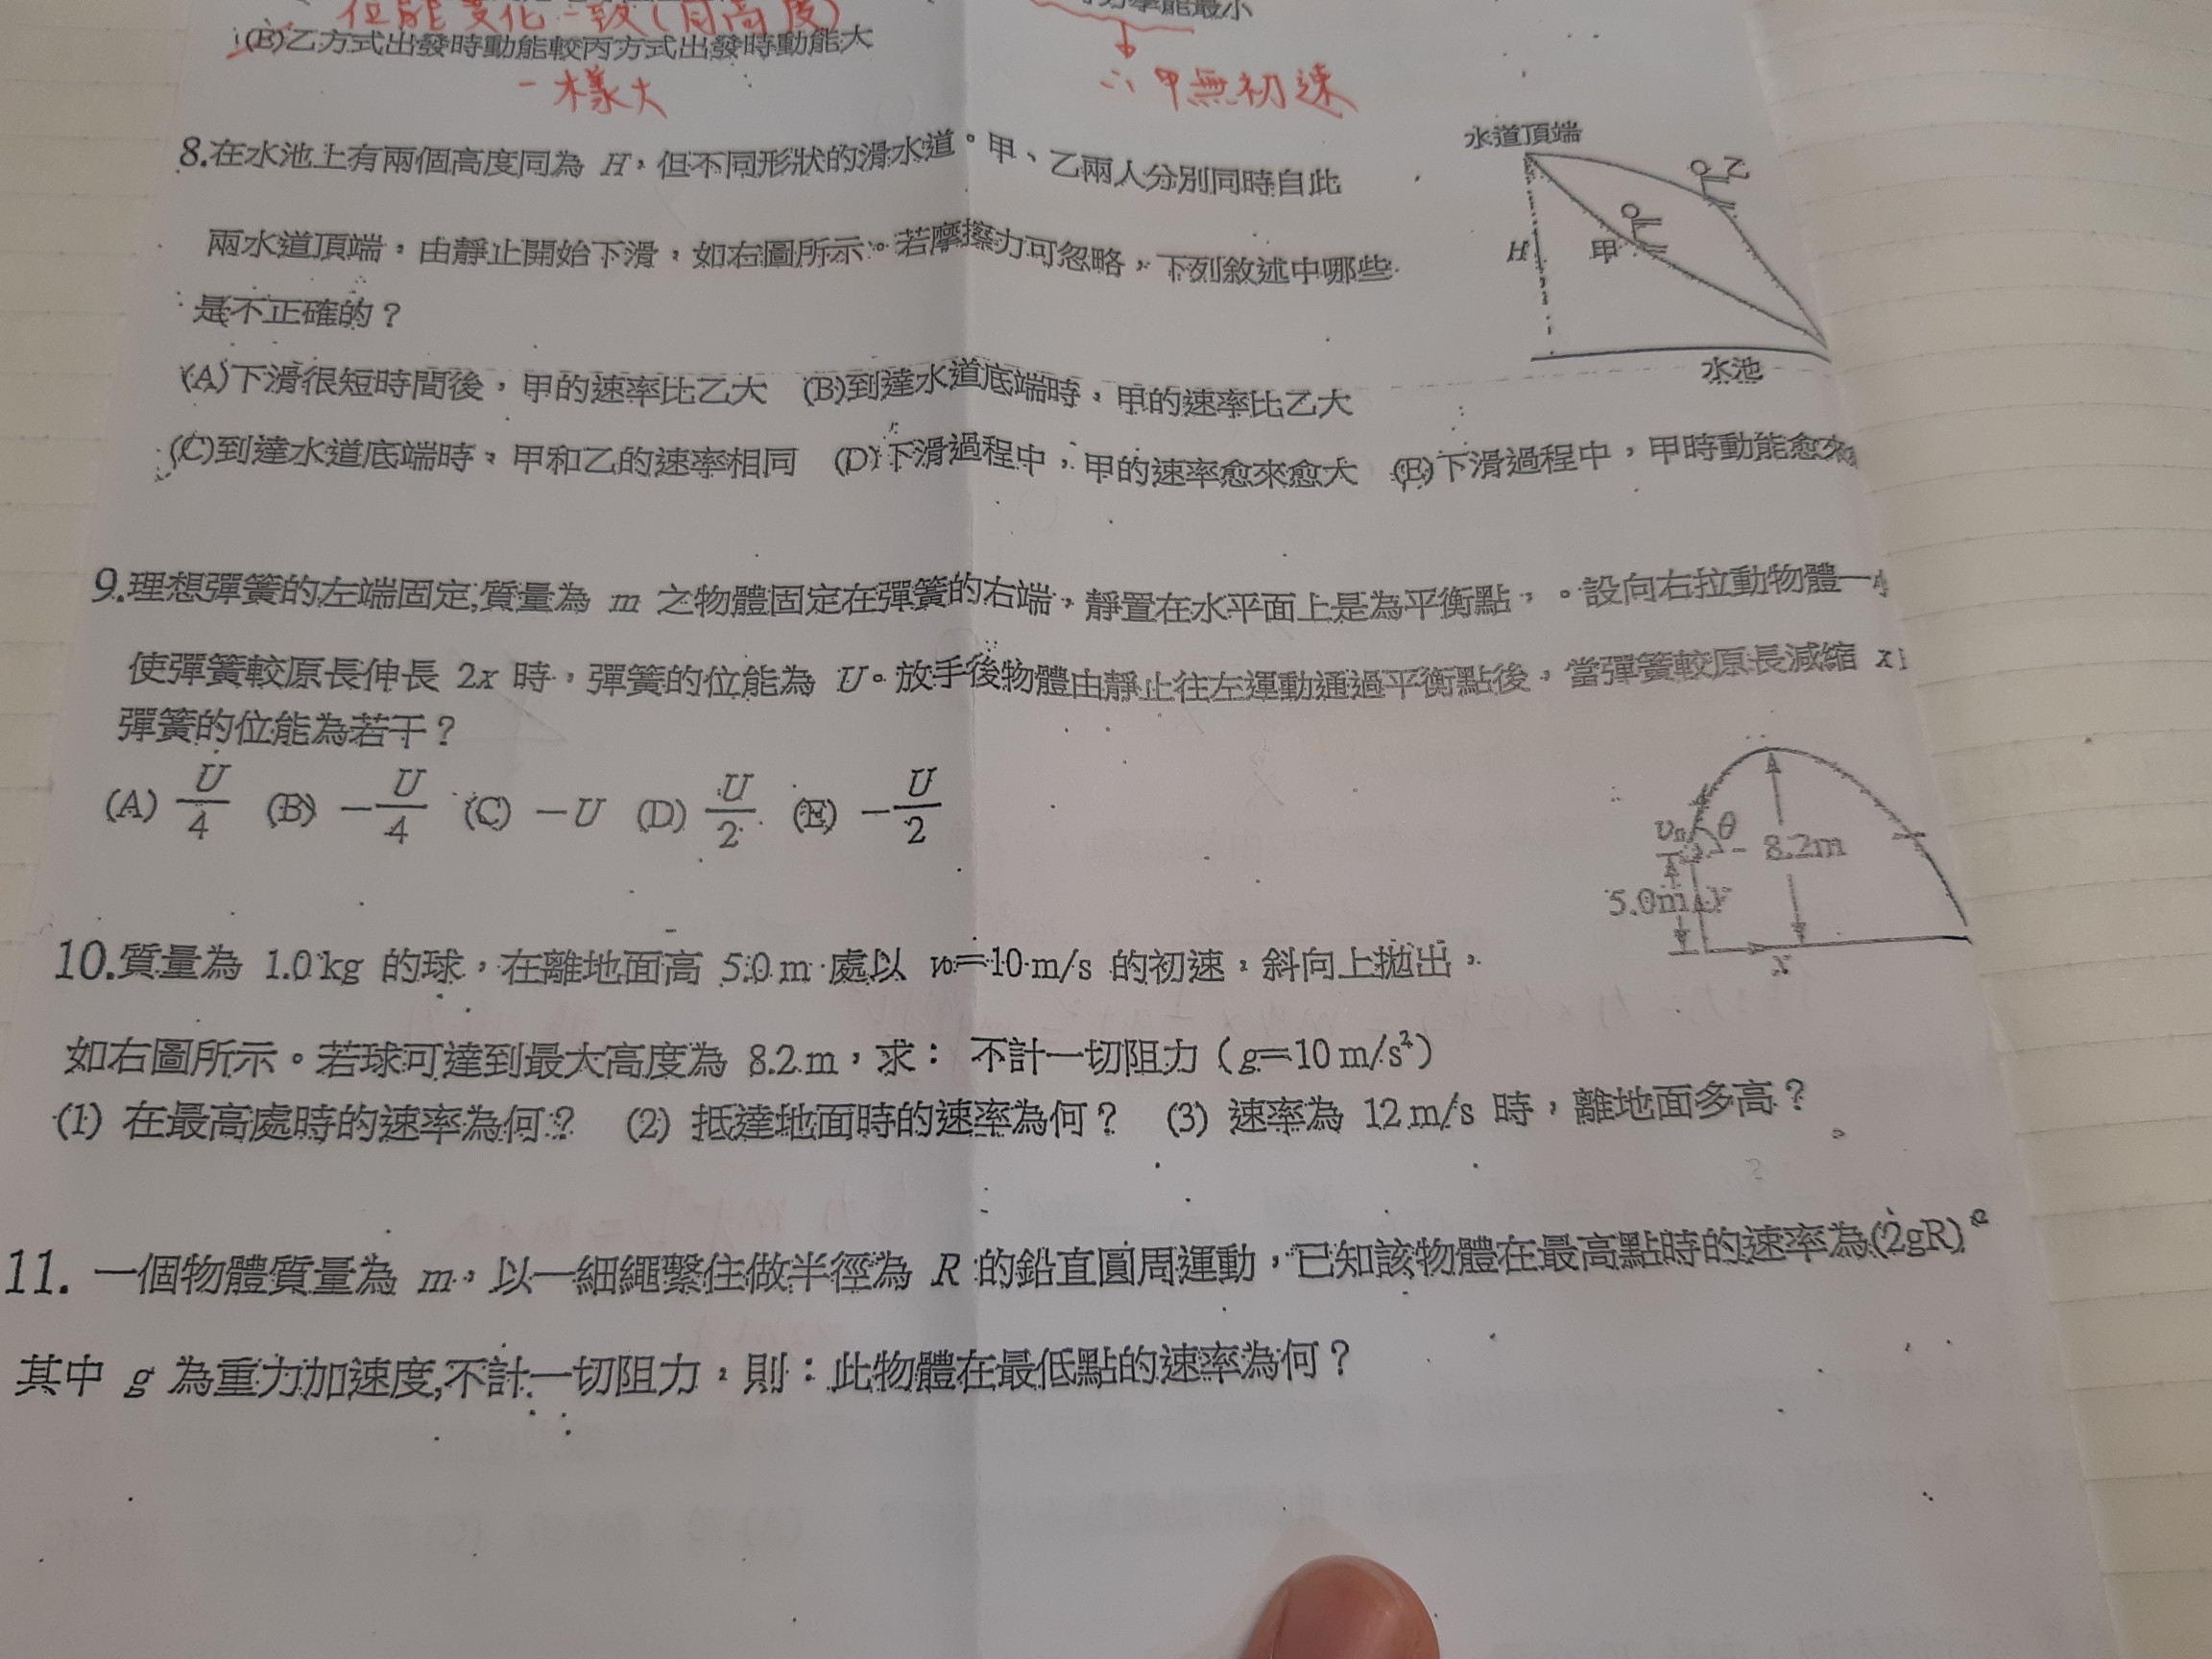 位能變化一致(同高度)
(E)乙方式出發時動能較丙方式出發時動能大
力學能最小
一樣大
∴甲無初速
8.在水池上有兩個高度同為 H，但不同形狀的滑水道。甲、乙兩人分別同時自此
兩水道頂端，由靜止開始下滑，如右圖所示。若摩擦力可忽略，下列敘述中哪些
是不正確的？
水道頂端
乙
甲
H
水池
(A)下滑很短時間後，甲的速率比乙大 (B)到達水道底端時，甲的速率比乙大
(C)到達水道底端時，甲和乙的速率相同 (D)下滑過程中，甲的速率愈來愈大 (E)下滑過程中，甲時動能愈來
9.理想彈簧的左端固定,質量為 m 之物體固定在彈簧的右端，靜置在水平面上是為平衡點，。設向右拉動物體一
使彈簧較原長伸長 2x 時，彈簧的位能為 U。放手後物體由靜止往左運動通過平衡點後，當彈簧較原長減縮 x
彈簧的位能為若干？
(A) U/4 (B) −U/4 (C) −U (D) U/2 (E) −U/2
v₀ θ
8.2m
5.0m y
x
10.質量為 1.0 kg 的球，在離地面高 5.0 m 處以 v₀＝10 m/s 的初速，斜向上拋出，
如右圖所示。若球可達到最大高度為 8.2 m，求： 不計一切阻力（g＝10 m/s²）
(1) 在最高處時的速率為何？ (2) 抵達地面時的速率為何？ (3) 速率為 12 m/s 時，離地面多高？
11. 一個物體質量為 m，以一細繩繫住做半徑為 R 的鉛直圓周運動，已知該物體在最高點時的速率為(2gR)
其中 g 為重力加速度,不計一切阻力，則：此物體在最低點的速率為何？